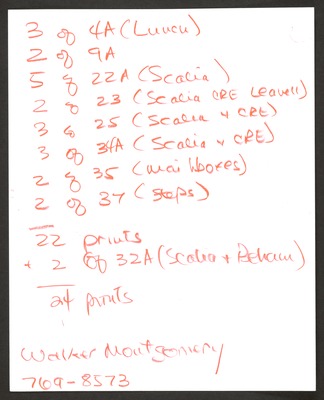 3 of 4A (Lunch)
2 of 9A
5 of 22A (Scalia)
2 of 23 (Scalia CRE Leavell)
3 of 25 (Scalia + CRE)
3 of 34A (Scalia + CRE)
2 of 35 (mailboxes)
2 of 37 (steps)
22 prints
+ 2 of 32A (Scalia +
24 prints
Walker Montgomery
769-8573